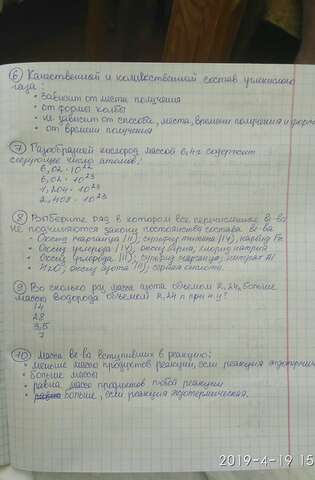 ⑥ Качественный и количественный состав углекислого
газа:
• зависит от места получения
• от формы колбы
• не зависит от способа, места, времени получения и формы
• от времени получения
⑦ Газообразный кислород массой 6,4г содержит
следующее число атомов.
6,02 · 10²²
6,02 · 10²³
1,204 · 10²³
2,408 · 10²³
⑧ Выберите ряд в котором все перечисленные в-ва
не подчиняются закону постоянства состава в-ва
• Оксид марганца (II); сульфид титана (IV), карбид Fe
• Оксид углерода (IV); оксид бария, хлорид натрия
• Оксид углерода (II); сульфид марганца, нитрат Al
• H₂O; оксид азота (II); серная кислота.
⑨ Во сколько раз масса азота объемом 2,24л больше
массы водорода объемом 2,24 л при н.у?
14
28
3,5
7
⑩ Масса ве-ва вступивших в реакцию:
• меньше массы продуктов реакции, если реакция эндотермич
• больше массы
• равна массе продуктов любой реакции
• больше, если реакция экзотермическая.
2019-4-19 15